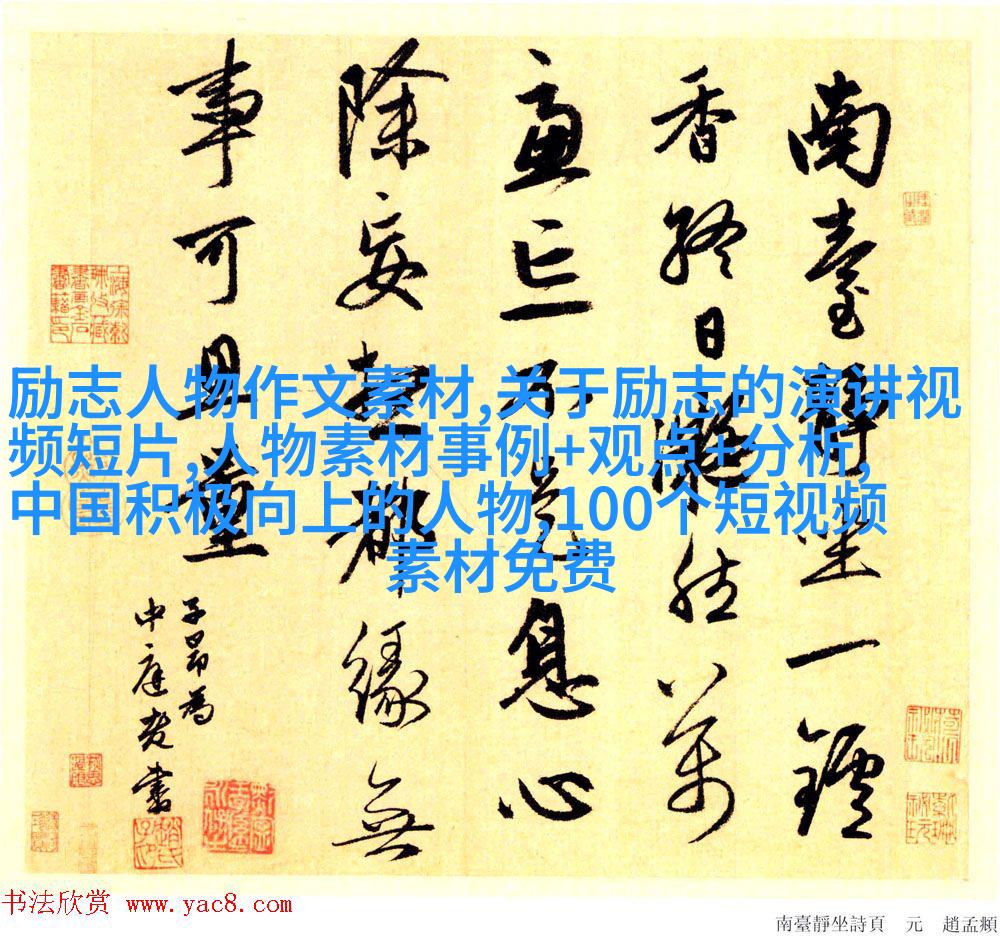 南臺靜坐一鑪
香終日凝然萬
慮亡不是息心
除妄想都緣無
事可思量
子昂為
中庭老書
励志人物作文素材,关于励志的演讲视
频短片,人物素材事例+观点+分析,
中国积极向上的人物,100个短视频
素材免费
书法欣赏 www.yac8.com
南臺靜坐詩頁 元 趙孟頫